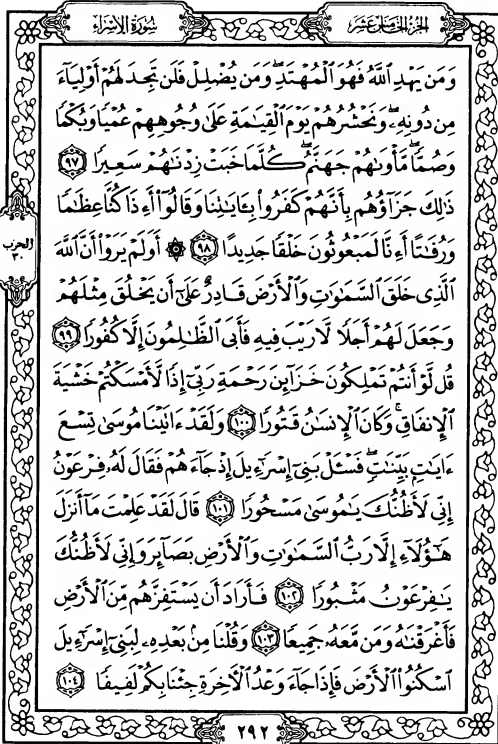 سُورَةُ الإِسْرَاءِ
الجُزْءُ الخَامِسَ عَشَرَ
وَمَن يَهْدِ ٱللَّهُ فَهُوَ ٱلْمُهْتَدِۖ وَمَن يُضْلِلْ فَلَن تَجِدَ لَهُمْ أَوْلِيَآءَ
مِن دُونِهِۦۖ وَنَحْشُرُهُمْ يَوْمَ ٱلْقِيَٰمَةِ عَلَىٰ وُجُوهِهِمْ عُمْيًا وَبُكْمًا
وَصُمًّاۖ مَّأْوَىٰهُمْ جَهَنَّمُۖ كُلَّمَا خَبَتْ زِدْنَٰهُمْ سَعِيرًا ٩٧
ذَٰلِكَ جَزَآؤُهُم بِأَنَّهُمْ كَفَرُوا۟ بِـَٔايَٰتِنَا وَقَالُوٓا۟ أَءِذَا كُنَّا عِظَٰمًا
وَرُفَٰتًا أَءِنَّا لَمَبْعُوثُونَ خَلْقًا جَدِيدًا ٩٨ ۞ أَوَلَمْ يَرَوْا۟ أَنَّ ٱللَّهَ
ٱلَّذِى خَلَقَ ٱلسَّمَٰوَٰتِ وَٱلْأَرْضَ قَادِرٌ عَلَىٰٓ أَن يَخْلُقَ مِثْلَهُمْ
وَجَعَلَ لَهُمْ أَجَلًا لَّا رَيْبَ فِيهِ فَأَبَى ٱلظَّٰلِمُونَ إِلَّا كُفُورًا ٩٩
قُل لَّوْ أَنتُمْ تَمْلِكُونَ خَزَآئِنَ رَحْمَةِ رَبِّىٓ إِذًا لَّأَمْسَكْتُمْ خَشْيَةَ
ٱلْإِنفَاقِۚ وَكَانَ ٱلْإِنسَٰنُ قَتُورًا ١٠٠ وَلَقَدْ ءَاتَيْنَا مُوسَىٰ تِسْعَ
ءَايَٰتٍۭ بَيِّنَٰتٍۖ فَسْـَٔلْ بَنِىٓ إِسْرَٰٓءِيلَ إِذْ جَآءَهُمْ فَقَالَ لَهُۥ فِرْعَوْنُ
إِنِّى لَأَظُنُّكَ يَٰمُوسَىٰ مَسْحُورًا ١٠١ قَالَ لَقَدْ عَلِمْتَ مَآ أَنزَلَ
هَٰٓؤُلَآءِ إِلَّا رَبُّ ٱلسَّمَٰوَٰتِ وَٱلْأَرْضِ بَصَآئِرَ وَإِنِّى لَأَظُنُّكَ
يَٰفِرْعَوْنُ مَثْبُورًا ١٠٢ فَأَرَادَ أَن يَسْتَفِزَّهُم مِّنَ ٱلْأَرْضِ
فَأَغْرَقْنَٰهُ وَمَن مَّعَهُۥ جَمِيعًا ١٠٣ وَقُلْنَا مِنۢ بَعْدِهِۦ لِبَنِىٓ إِسْرَٰٓءِيلَ
ٱسْكُنُوا۟ ٱلْأَرْضَ فَإِذَا جَآءَ وَعْدُ ٱلْأَخِرَةِ جِئْنَا بِكُمْ لَفِيفًا ١٠٤
الحزب
٣٠
٢٩٢